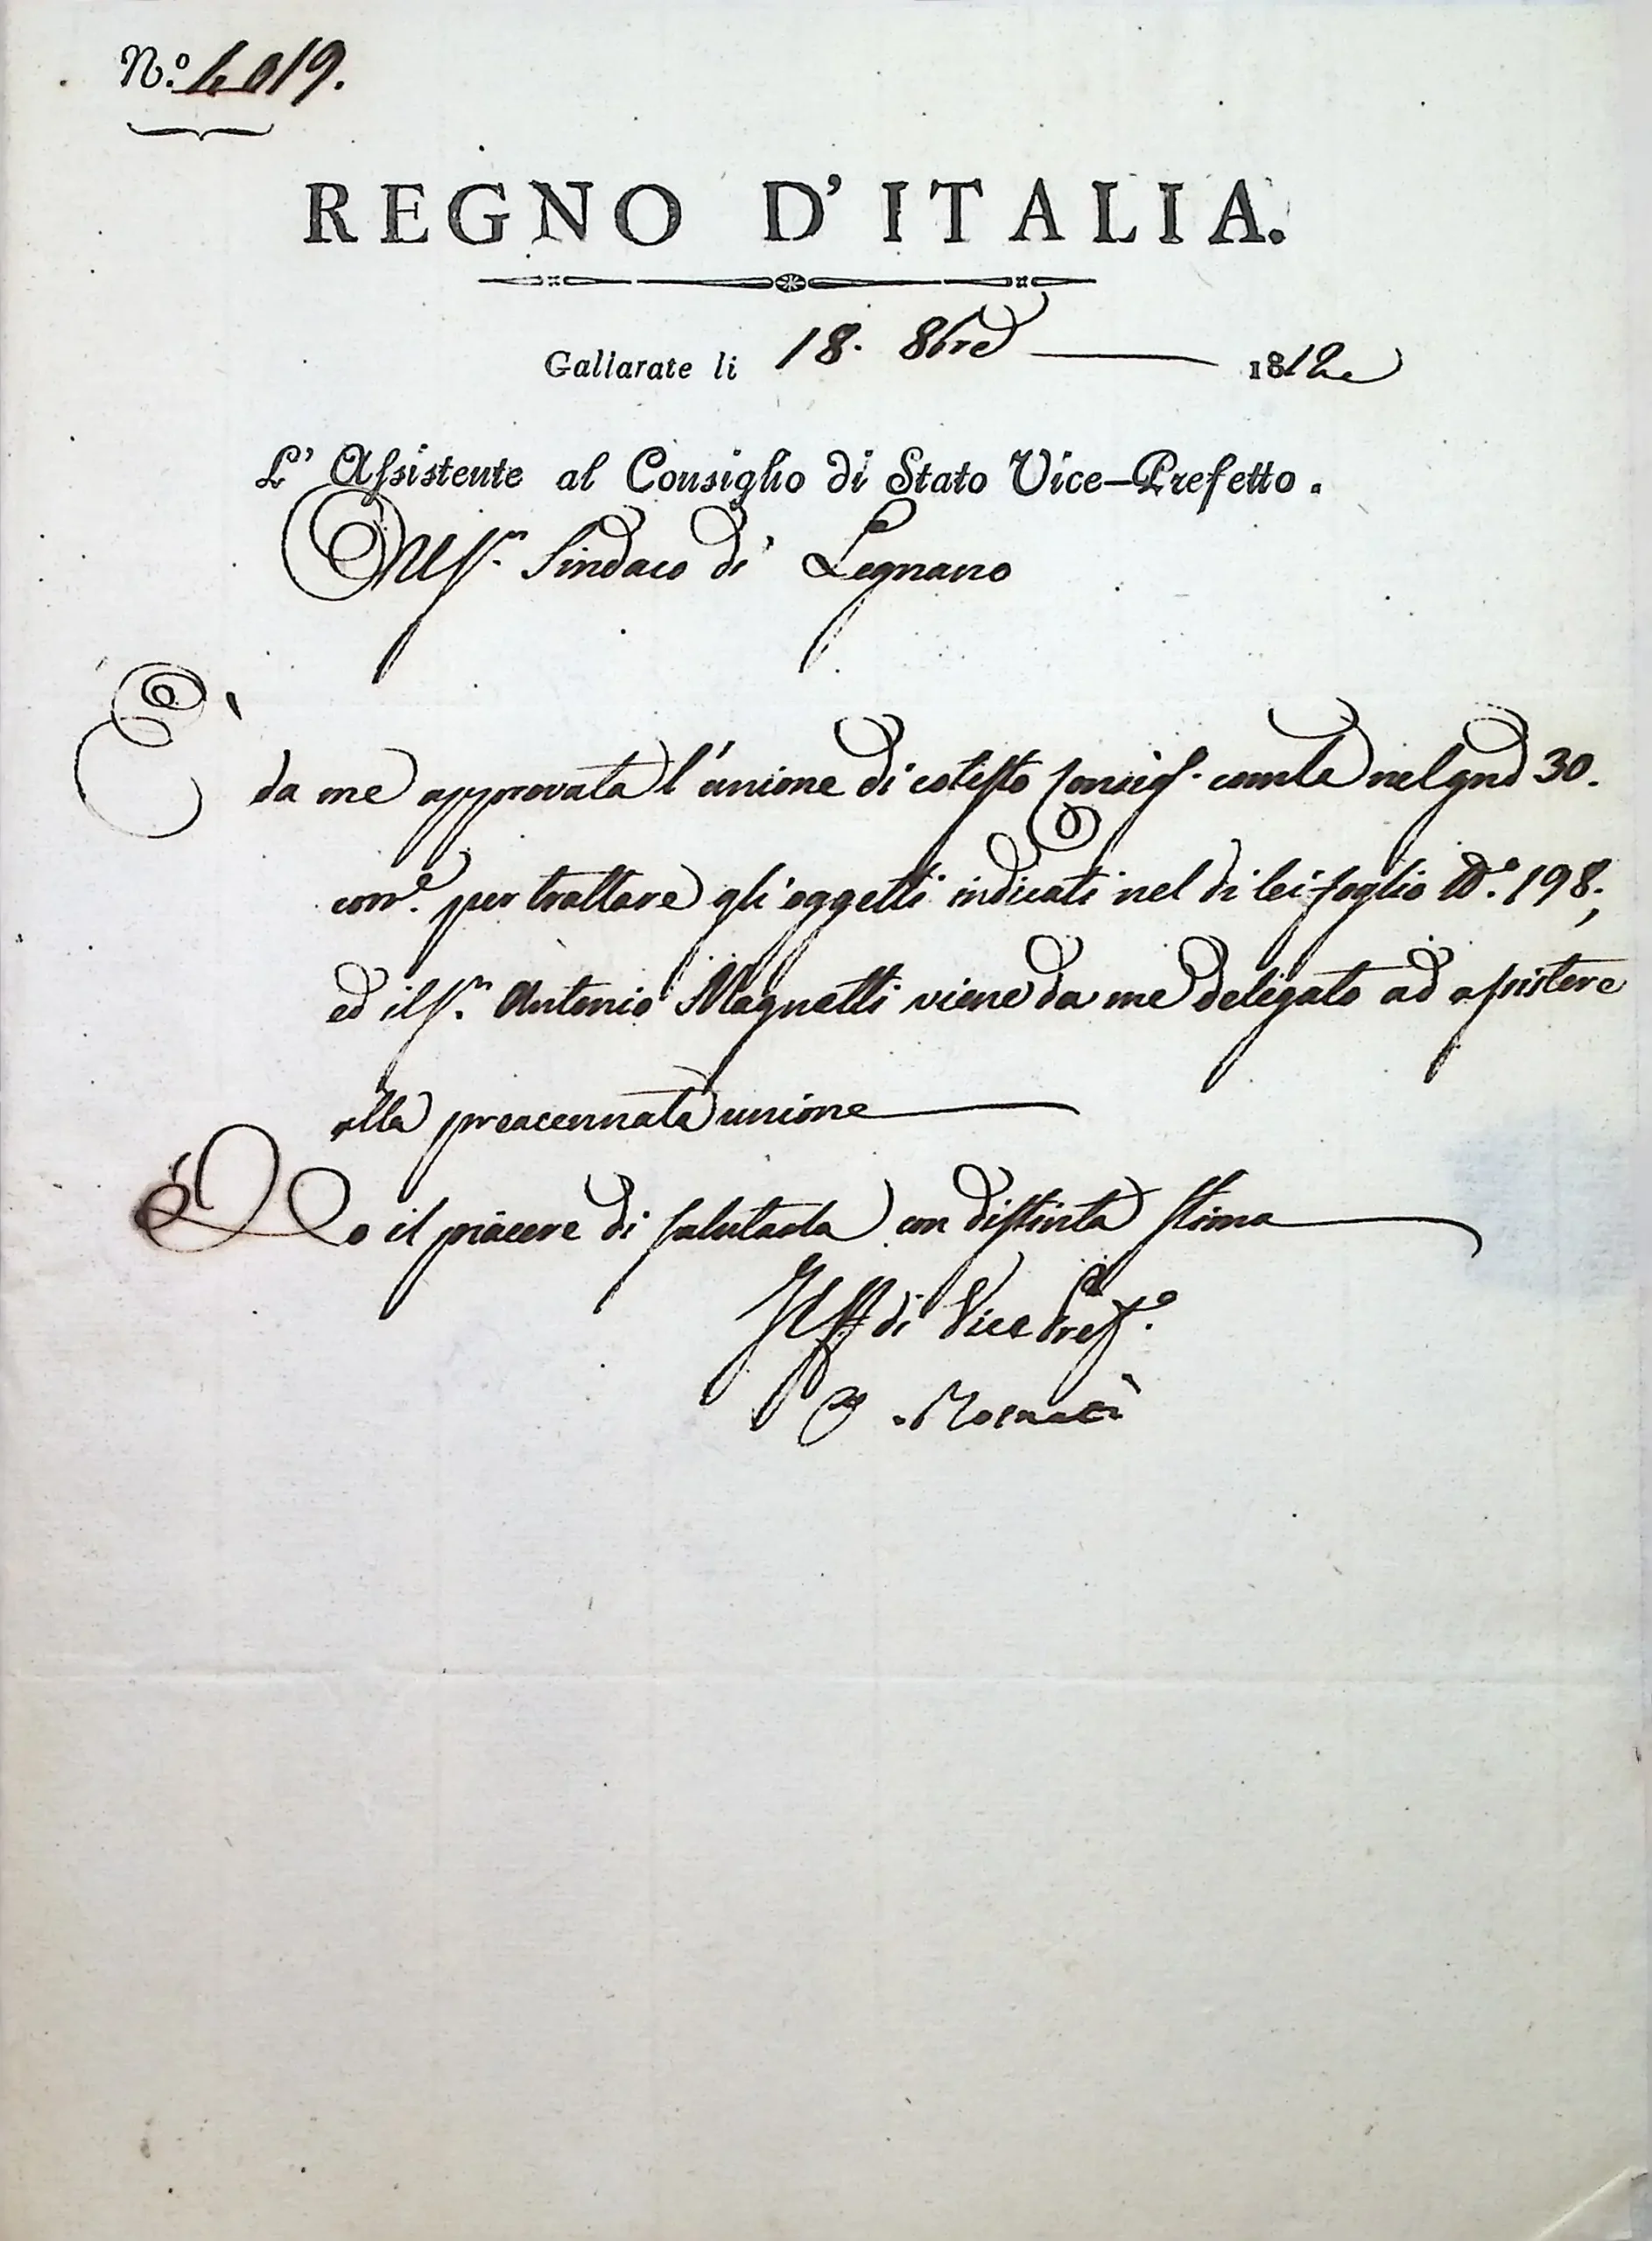 N.º 4019.
REGNO D'ITALIA.
Gallarate li 18. 8bre 1812
L' Assistente al Consiglio di Stato Vice-Prefetto.
Al Sr. Sindaco di Legnano
È
da me approvata l'unione di cotesto Consigl. comle nel gno 30.
corre. per trattare gli oggetti indicati nel di lei foglio Nº. 198;
ed il Sr. Antonio Magnetti viene da me delegato ad assistere
alla preacennata unione
Ho il piacere di salutarla con distinta stima
di Vice Preftº.